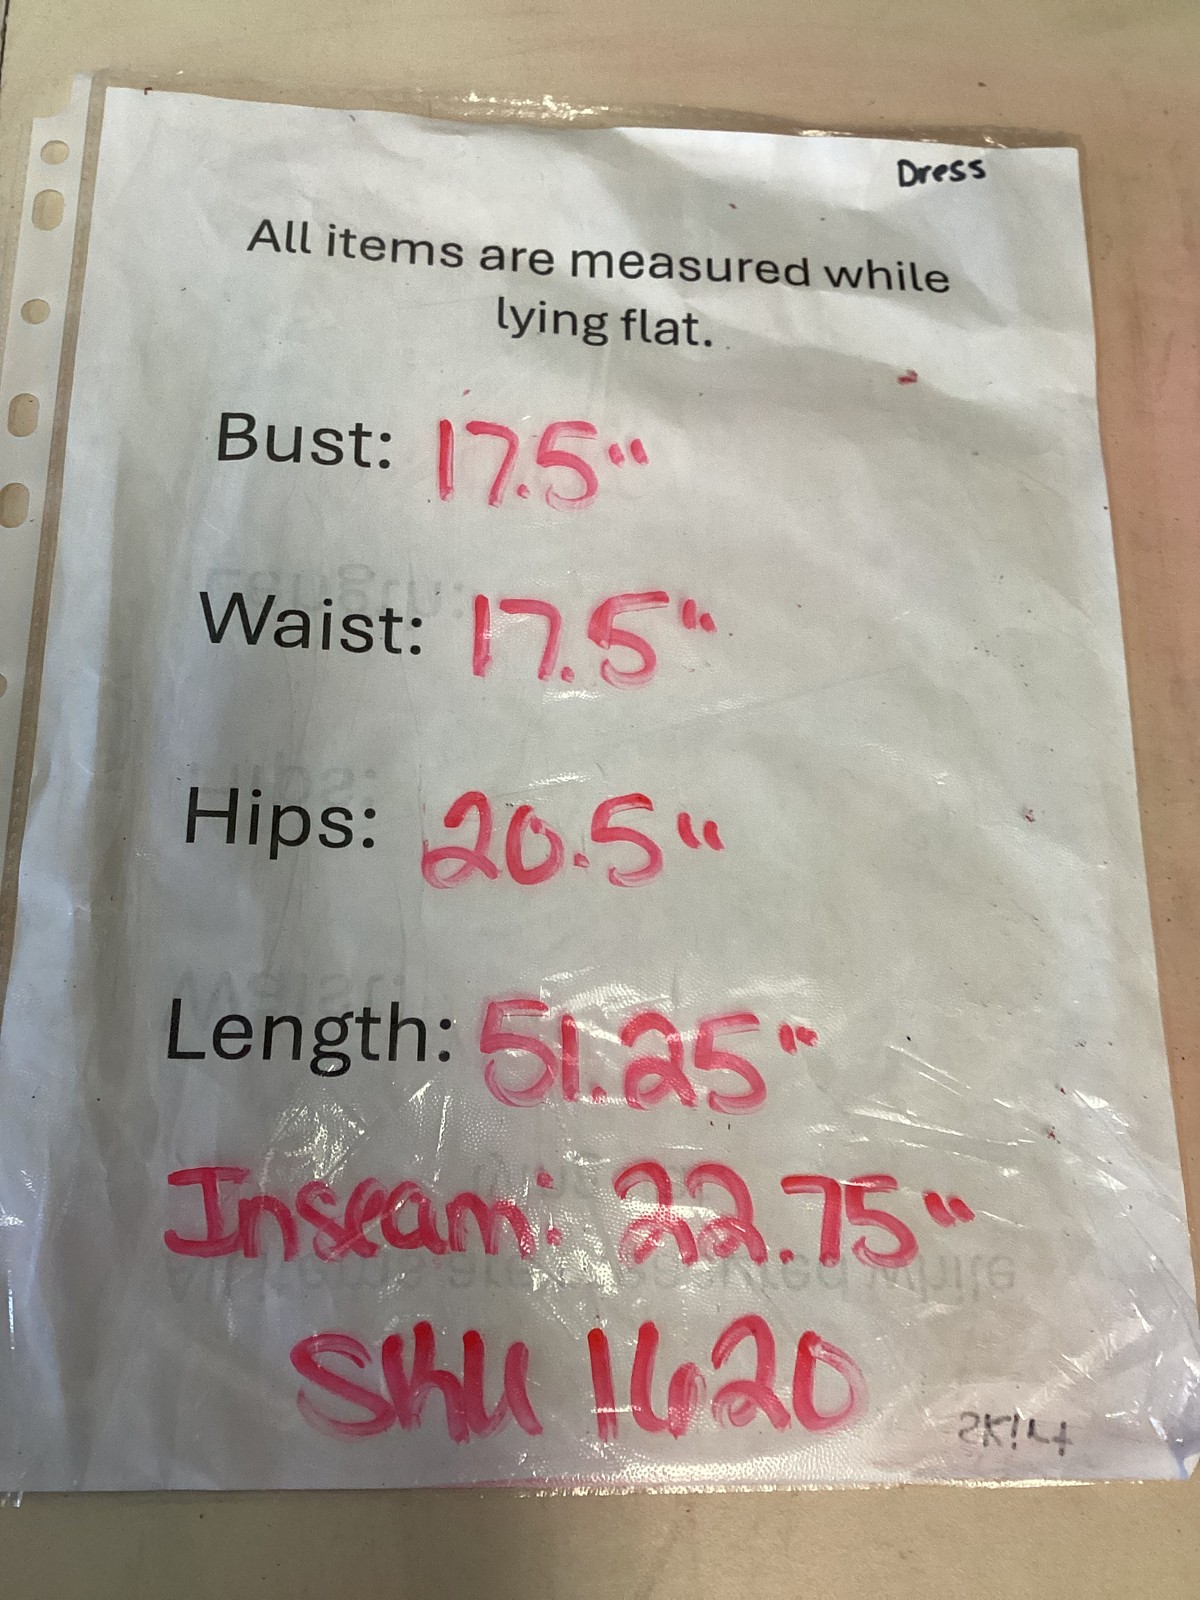 Dress
All items are measured while
lying flat.
Bust: 17.5"
Waist: 17.5"
Hips: 20.5"
Length: 51.25"
Inseam: 22.75"
SKU 1620